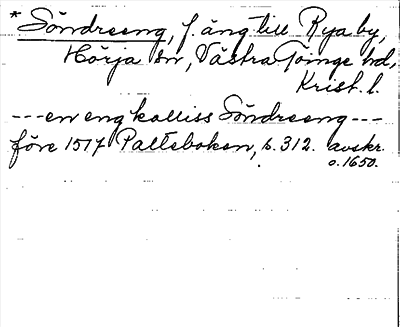 * Söndreeng, f. äng till Rya by,
Hörja sn, Västra Göinge hd,
Krist. l.
--- en eng kalliss Söndreeng ---
före 1517 Palteboken, s. 312. avskr.
o. 1650.